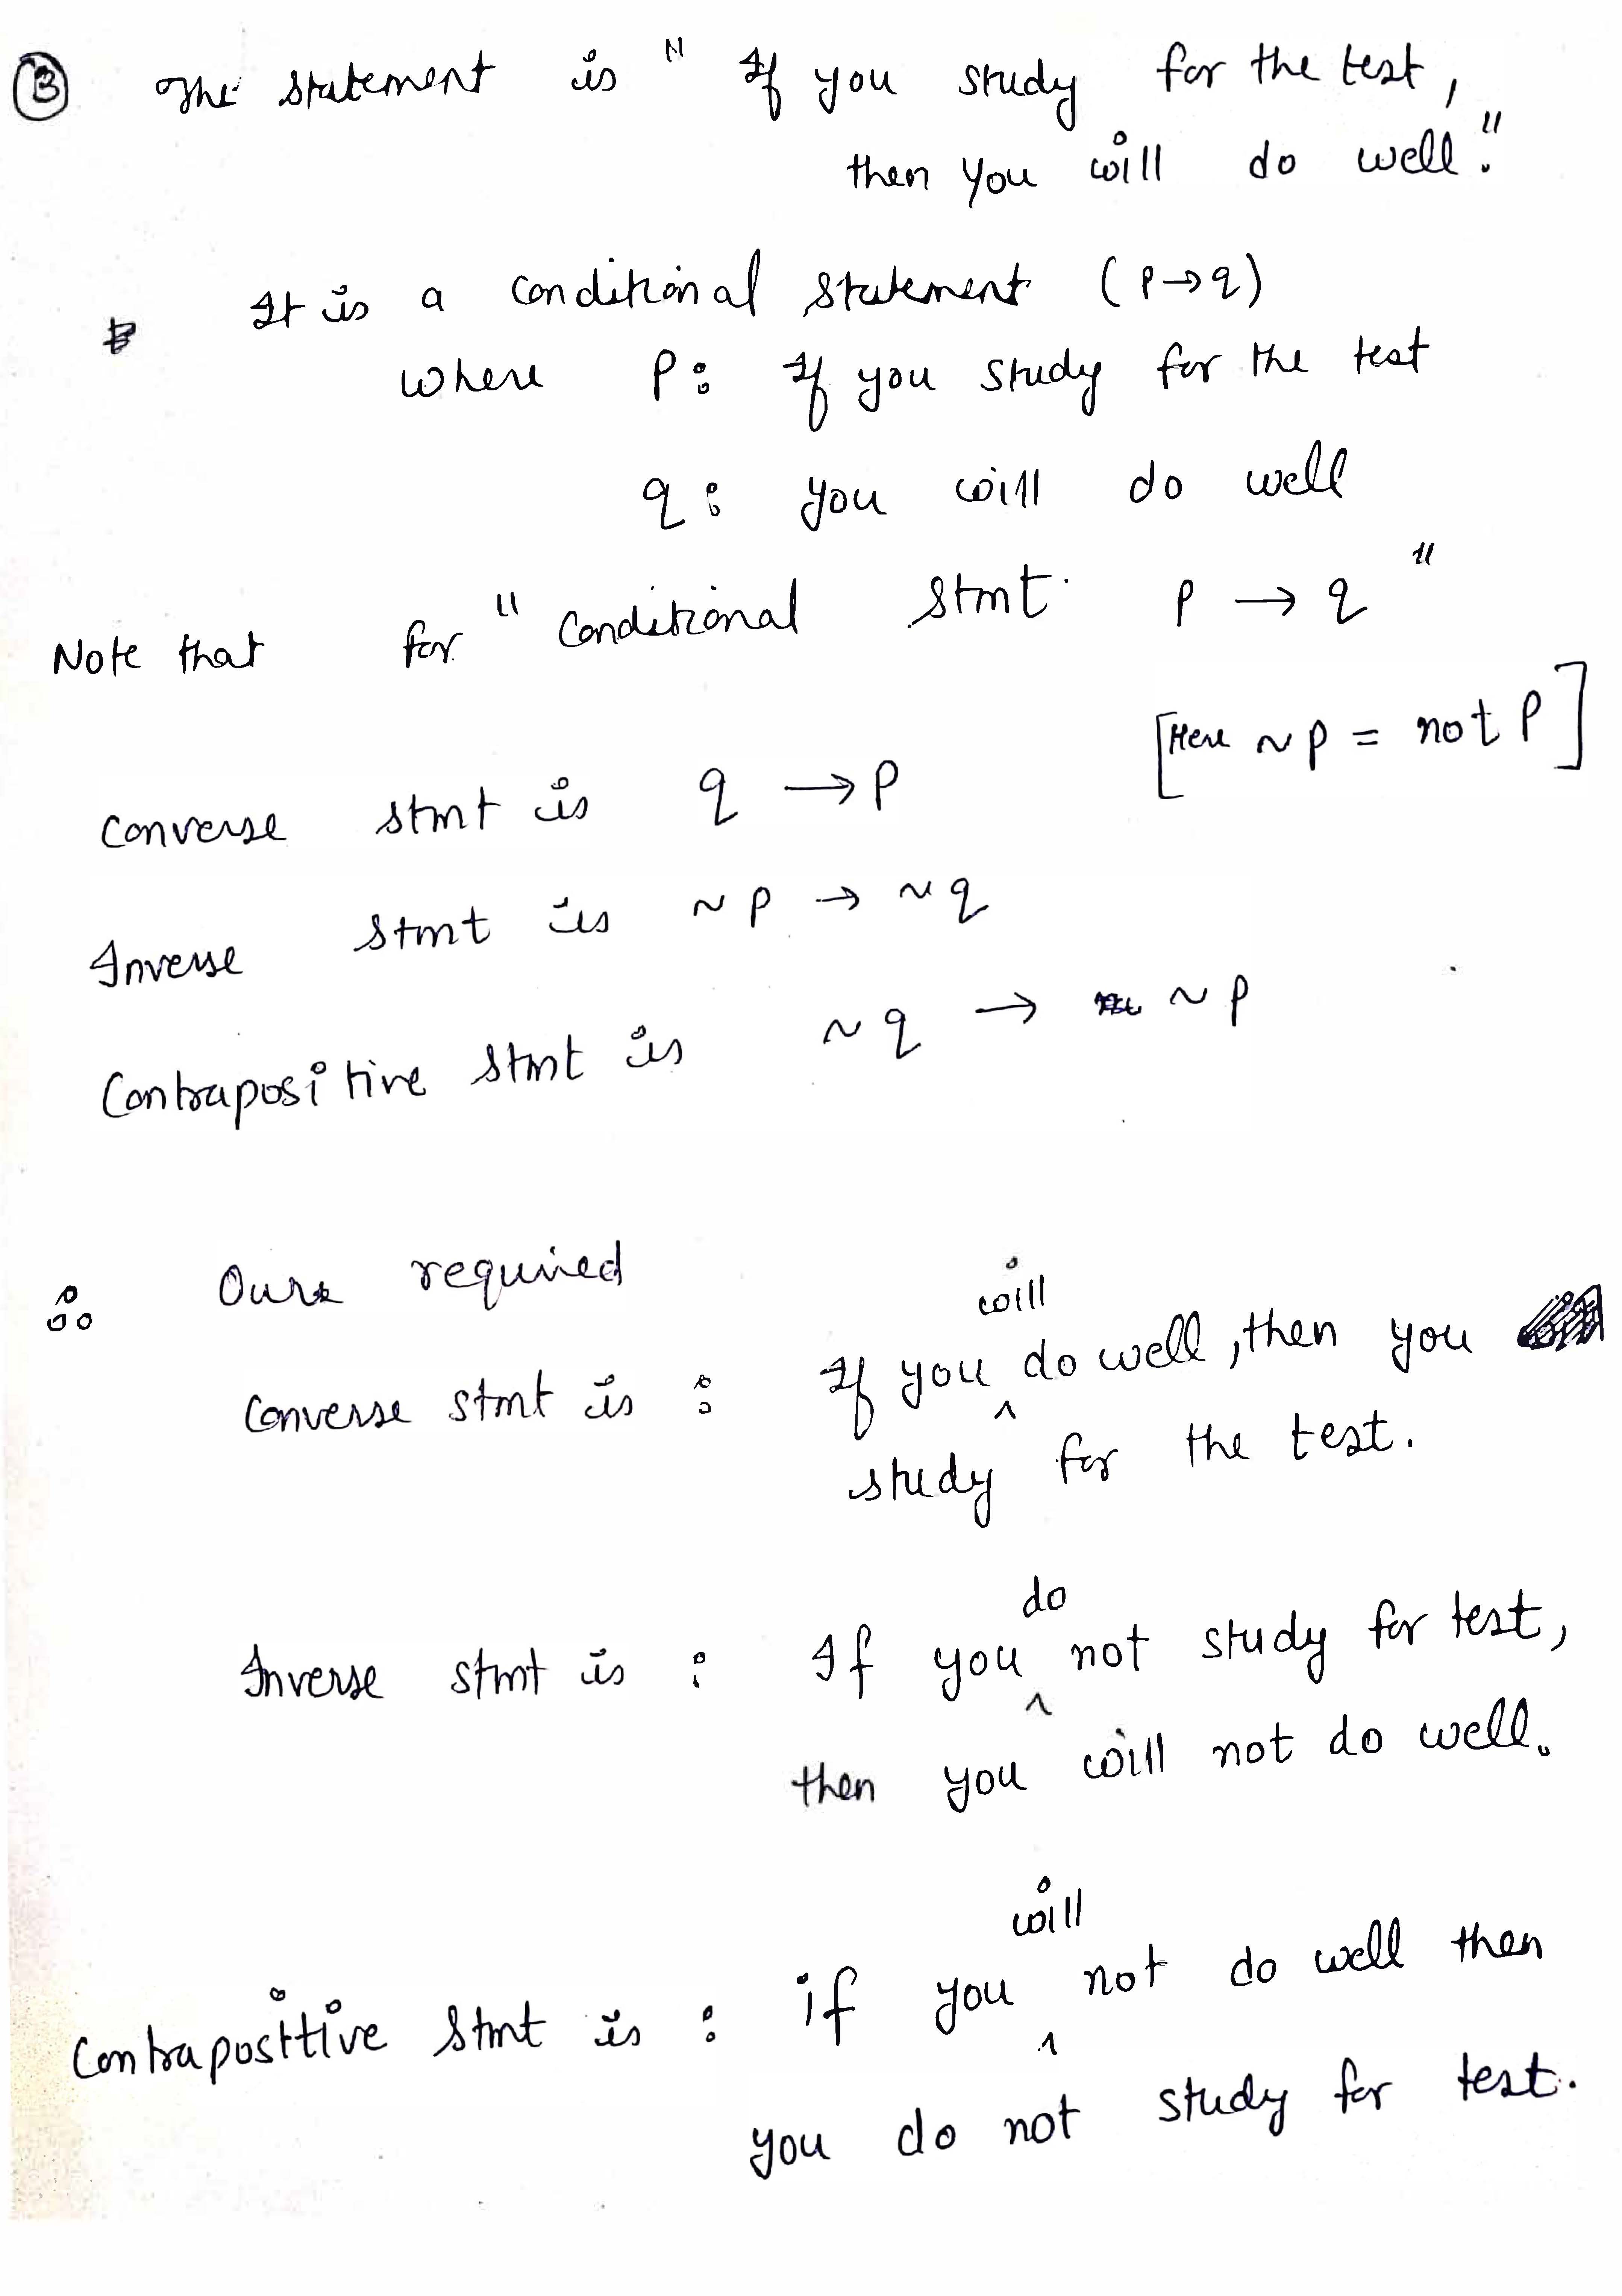 ③ The statement is " If you study for the test,
then you will do well."
It is a conditional statement (p→q)
where p: If you study for the test
q: you will do well
Note that for " conditional stmt. p → q "
[Here ~p = not p]
Converse stmt is q → p
Inverse stmt is ~p → ~q
Contrapositive stmt is ~q → ~p
∴ Our required
Converse stmt is : If you will do well, then you
study for the test.
Inverse stmt is : If you do not study for test,
then you will not do well.
Contraposittive stmt is : if you will not do well then
you do not study for test.